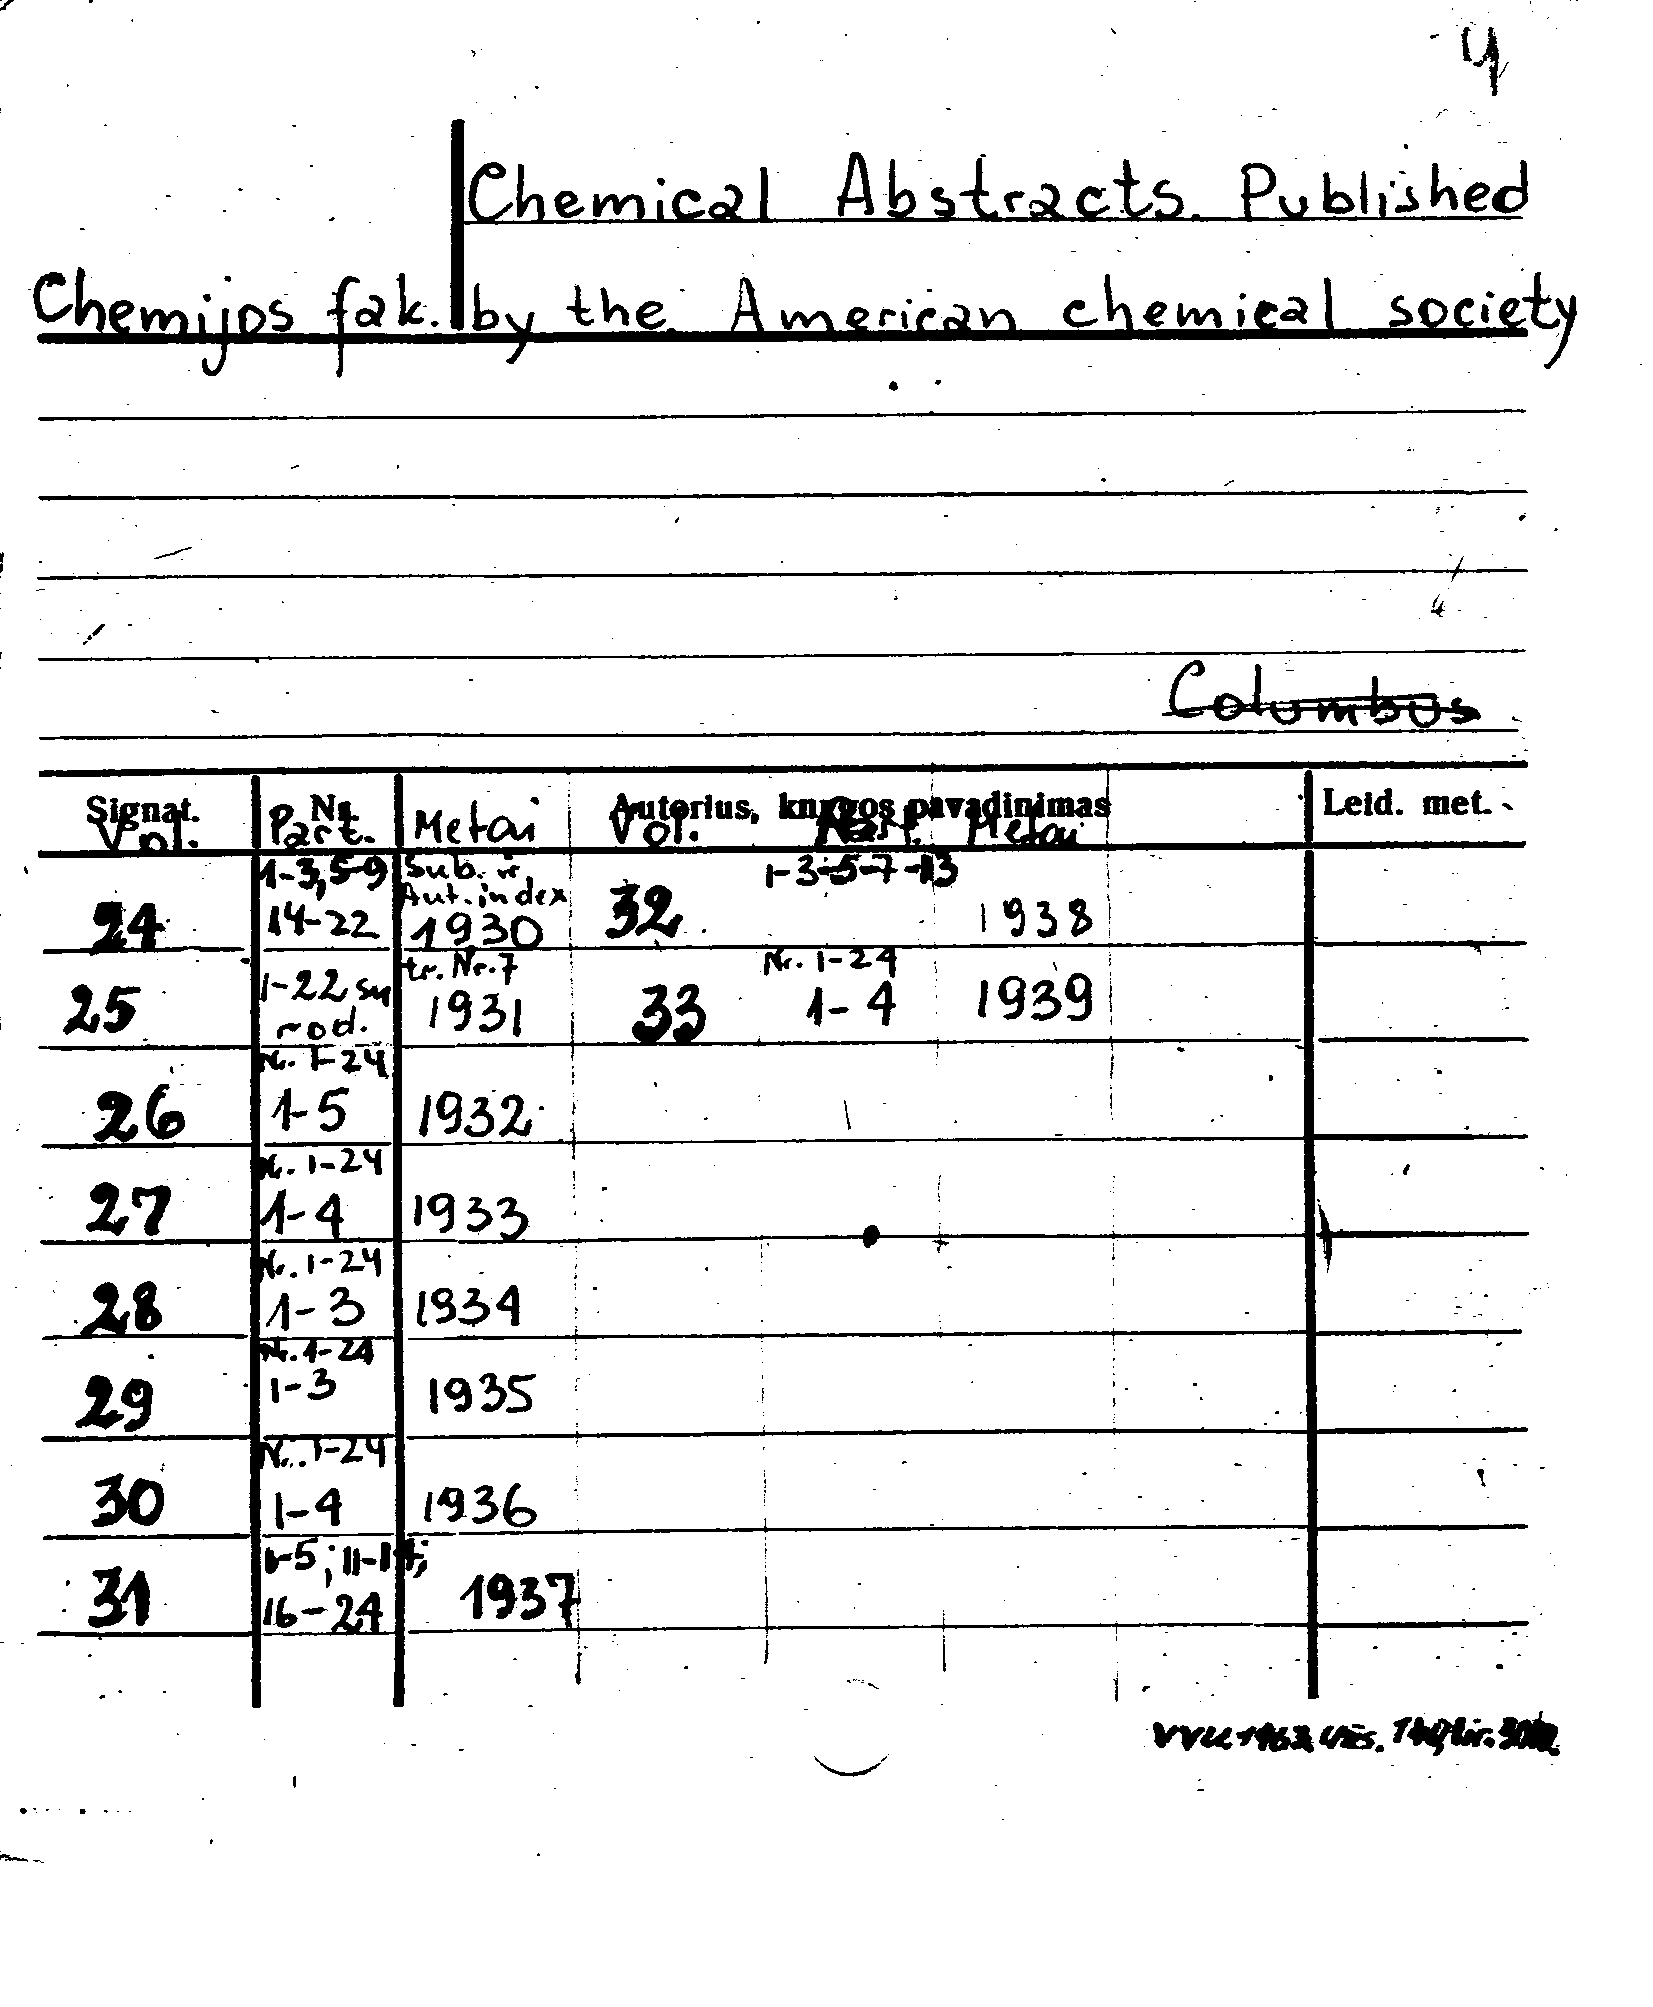 4
Chemical Abstracts. Published
Chemijos fak. by the American chemical society
Columbus
Signat. Nr. Autorius, knygos pavadinimas Leid. met.
Vol. Part. Metai Vol. Part. Metai
1-3, 5-9 Sub. ir 1-3-5-7-13
Aut. index
24 14-22 1930 32 1938
tr. Nr. 7 Nr. 1-24
25 1-22 su 1931 33 1-4 1939
rod.
Nr. 1-24
26 1-5 1932
Nr. 1-24
27 1-4 1933
Nr. 1-24
28 1-3 1934
Nr. 1-24
29 1-3 1935
Nr. 1-24
30 1-4 1936
1-5; 11-14;
31 16-24 1937